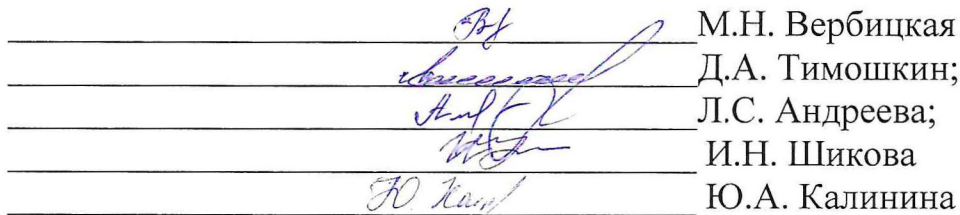 М.Н. Вербицкая
Д.А. Тимошкин;
Л.С. Андреева;
И.Н. Шикова
Ю.А. Калинина